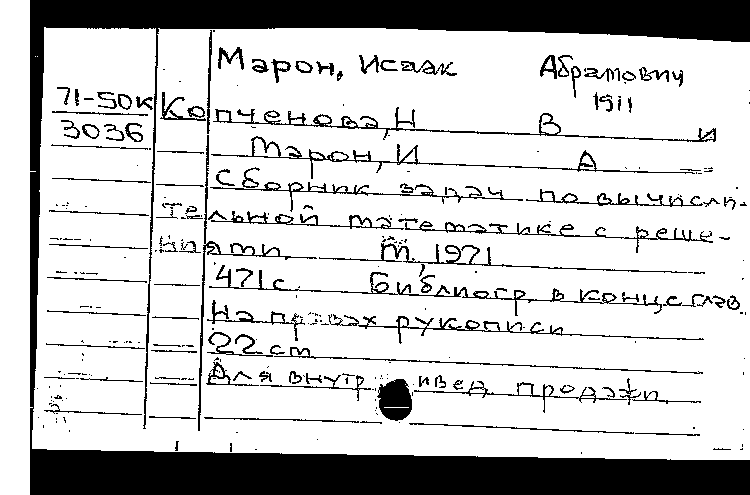 Марон, Исаак Абрамович
1911
71-50к Копченова, Н В и
3036 Марон, И А
Сборник задач по вычисли-
тельной математике с реше-
ниями. М, 1971
471 с. Библиогр. в конце глав
На правах рукописи
22 cm
Для внутриве<0xD0>. продажи